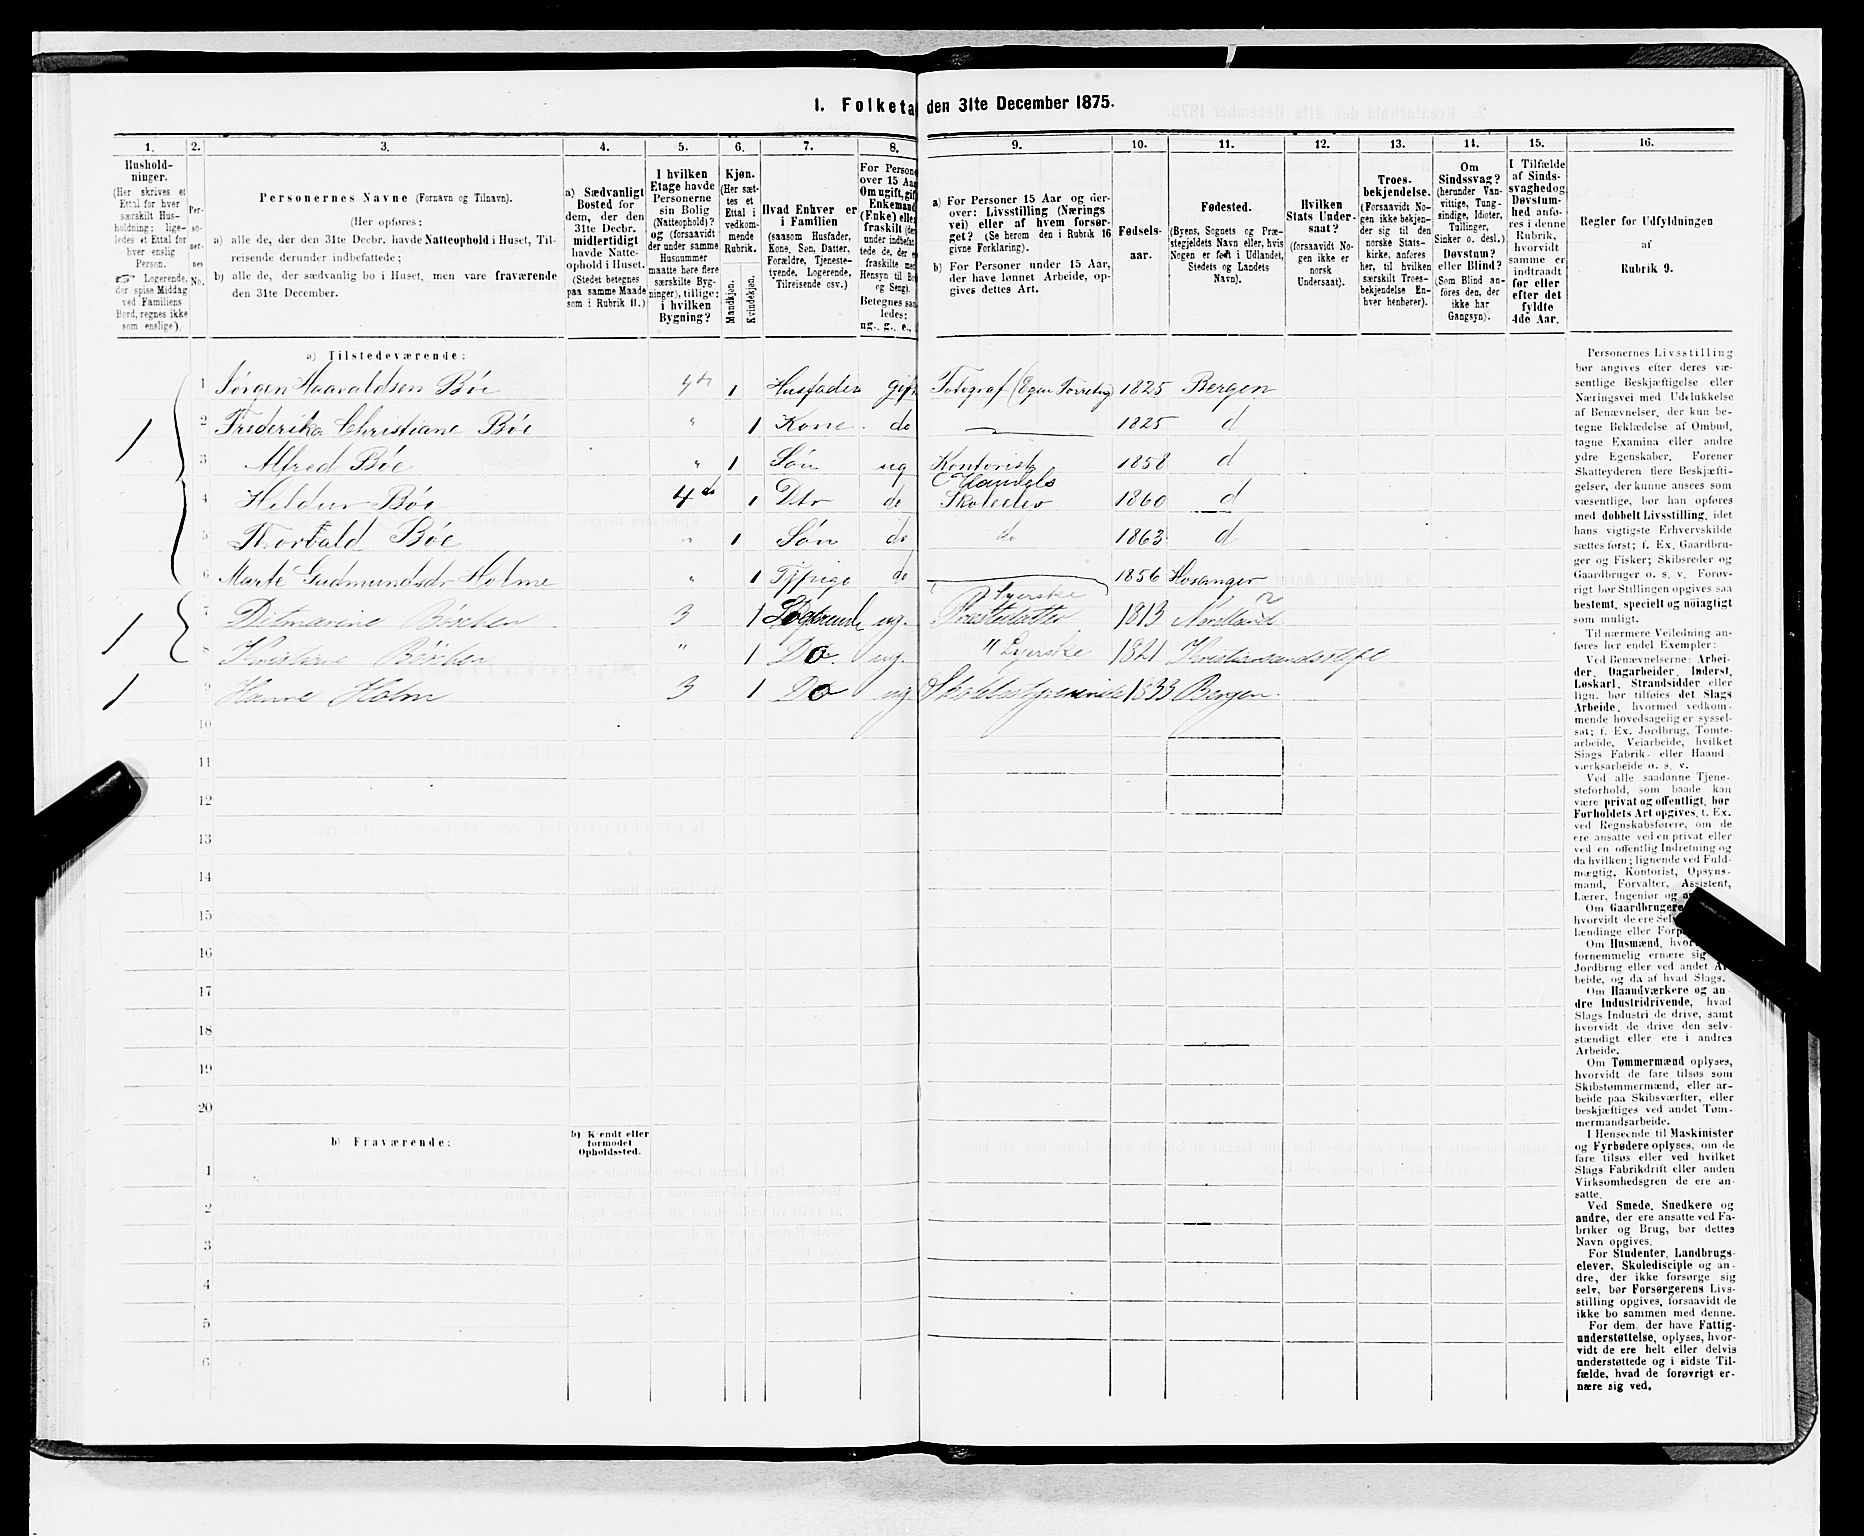 1. Folketa den 31te December 1875.
1. 2. 3. 4. 5. 6. 7. 8. 9. 10. 11. 12. 13. 14. 15. 16.
Hushold-
ninger.
(Her skrives et
Ettal for hver
særskilt Hus-
holdning; lige-
ledes et Ettal for
hver enslig
Person.
☞ Logerende,
der spise Middag
ved Familiens
Bord, regnes ikke
som enslige).
Per-
so-
ner-
nes
No.
Personernes Navne (Fornavn og Tilnavn).
(Her opføres:
a) alle de, der den 31te Decbr. havde Natteophold i Huset, Til-
reisende derunder indbefattede;
b) alle de, der sædvanlig bo i Huset, men vare fraværende
den 31te December.
a) Sædvanligt
Bosted for
dem, der den
31te Decbr.
midlertidigt
havde Natte-
ophold i Huset.
(Stedet betegnes
paa samme Maade
som i Rubrik 11.)
I hvilken
Etage havde
Personerne
sin Bolig
(Natteophold)?
og (forsaavidt
der under samme
Husnummer
maatte høre flere
særskilte Byg-
ninger), tillige:
i hvilken
Bygning?
Kjøn.
(Her sæt-
tes et
Ettal i
vedkom-
mende
Rubrik.
Mandkjøn.
Kvindekjøn.
Hvad Enhver er
i Familien
(saasom Husfader,
Kone, Søn, Datter,
Forældre, Tjeneste-
tyende, Logerende,
Tilreisende osv.)
For Persone
over 15 Aar
Om ugift, gift
Enkemand
(Enke) eller
fraskilt (der
under indbefat
tede de, der e
fraskilte med
Hensyn til Bo
og Seng).
Betegnes saa
ledes:
ug., g., e.,
a) For Personer 15 Aar og der-
over: Livsstilling (Nærings
vei) eller af hvem forsør-
get? (Se herom den i Rubrik 16
givne Forklaring).
b) For Personer under 15 Aar,
der have lønnet Arbeide, op-
gives dettes Art.
Fødsels-
aar.
Fødested.
(Byens, Sognets og Præ-
stegjeldets Navn eller, hvis
Nogen er født i Udlandet,
Stedets og Landets
Navn).
Hvilken
Stats Under-
saat?
(forsaavidt No-
gen ikke er
norsk
Undersaat).
Troes-
bekjendelse.
(Forsaavidt No-
gen ikke bekjen-
der sig til den
norske Stats-
kirke, anføres
her, til hvilken
særskilt Troes-
bekjendelse En-
hver henhører).
Om
Sindssvag?
(herunder Van-
vittige, Tung-
sindige, Idioter,
Tullinger,
Sinker o. desl.)
Døvstum?
eller Blind?
(Som Blind an-
føres den, der
ikke har
Gangsyn).
I Tilfælde
af Sinds-
svaghedog
Døvstum-
hed anfø-
res i denne
Rubrik,
hvorvidt
samme er
indtraadt
før eller
efter det
fyldte
4de Aar.
Regler for Udfyldningen
af
Rubrik 9.
a) Tilstedeværende:
1 Jørgen Haavaldsen Bøe 4de 1 Husfader gift Fotograf (Egen Forretng) 1825 Bergen
1 2 Frederika Christiane Bøe " 1 Kone do 1825 d
3 Alfred Bøe " 1 Søn ug Kontorist 1858 d
4 Heldur Bøe 4de 1 Dtr do Handels Skoleelev 1860 d
5 Thorvald Bøe " 1 Søn do do 1863 d
6 Marte Gudmundsdr Holme " 1 Tjpige do 1856 Hosanger
1 7 Ditmarine 3 1 Logerende ug. Syerske Præstedatter 1813 Nordland
8 Kristiane " 1 Do. ug. " Syerske 1821 Kristiansandsstift
1 9 Hanne Holm 3 1 Do ug. Skolebestyrerinde 1833 Bergen.
10
11
12
13
14
15
16
17
18
19
20
b) Fraværende:
b) Kjendt eller
formodet
Opholdssted.
1
2
3
4
5
6
Personernes Livsstilling
bør angives efter deres væ-
sentlige Beskjæftigelse eller
Næringsvei med Udelukkelse
af Benævnelser, der kun be-
tegne Beklædelse af Ombud,
tagne Examina eller andre
ydre Egenskaber. Forener
Skatteyderen flere Beskjæfti-
gelser, der kunne ansees som
væsentlige, bør han opføres
med dobbelt Livsstilling, idet
hans vigtigste Erhvervskilde
sættes først; f. Ex. Gaardbru-
ger og Fisker; Skibsreder og
Gaardbruger o. s. v. Forøv-
rigt bør Stillingen opgives saa
bestemt, specielt og nøiagtigt
som muligt.
Til nærmere Veiledning an-
føres her endel Exempler:
Ved Benævnelserne: Arbei-
der, Dagarbeider, Inderst,
Løskarl, Strandsidder eller
lign. bør tilføies det Slags
Arbeide, hvormed vedkom-
mende hovedsagelig er syssel-
sat; f. Ex. Jordbrug, Tomte-
arbeide, Veiarbeide, hvilket
Slags Fabrik- eller Haand-
værksarbeide o. s. v.
Ved alle saadanne Tjene-
steforhold, som baade kan
være privat og offentligt, bør
Forholdets Art opgives, f. Ex.
ved Regnskabsførere, om de
ere ansatte ved en privat eller
ved en offentlig Indretning og
da hvilken; lignende ved Fuld-
mægtig, Kontorist, Opsyns-
mand, Forvalter, Assistent,
Lærer, Ingeniør og
Om Gaardbrugere
hvorvidt de ere Sel
lændinge eller Forp
Om Husmænd, hvor
fornemmelig ernære sig
Jordbrug eller ved andet Ar-
beide, og da af hvad Slags.
Om Haandværkere og an-
dre Industridrivende, hvad
Slags Industri de drive, samt
hvorvidt de drive den selv-
stændigt eller ere i andres
Arbeide.
Om Tømmermænd oplyses,
hvorvidt de fare tilsøs som
Skibstømmermænd, eller ar-
beide paa Skibsværfter, eller
beskjæftiges ved andet Tøm-
mermandsarbeide.
I Henseende til Maskinister
og Fyrbødere oplyses, om de
fare tilsøs eller ved hvilket
Slags Fabrikdrift eller anden
Virksomhedsgren de ere an-
satte.
Ved Smede, Snedkere og
andre, der ere ansatte ved Fa-
briker og Brug, bør dettes
Navn opgives.
For Studenter, Landbrugs-
elever, Skoledisciple og an-
dre, der ikke forsørge sig
selv, bør Forsørgerens Livs-
stilling opgives, forsaavidt de
ikke bo sammen med denne.
For dem, der have Fattig-
understøttelse, oplyses, hvor-
vidt de ere helt eller delvis
understøttede og i sidste Til-
fælde, hvad de forøvrigt er-
nære sig ved.